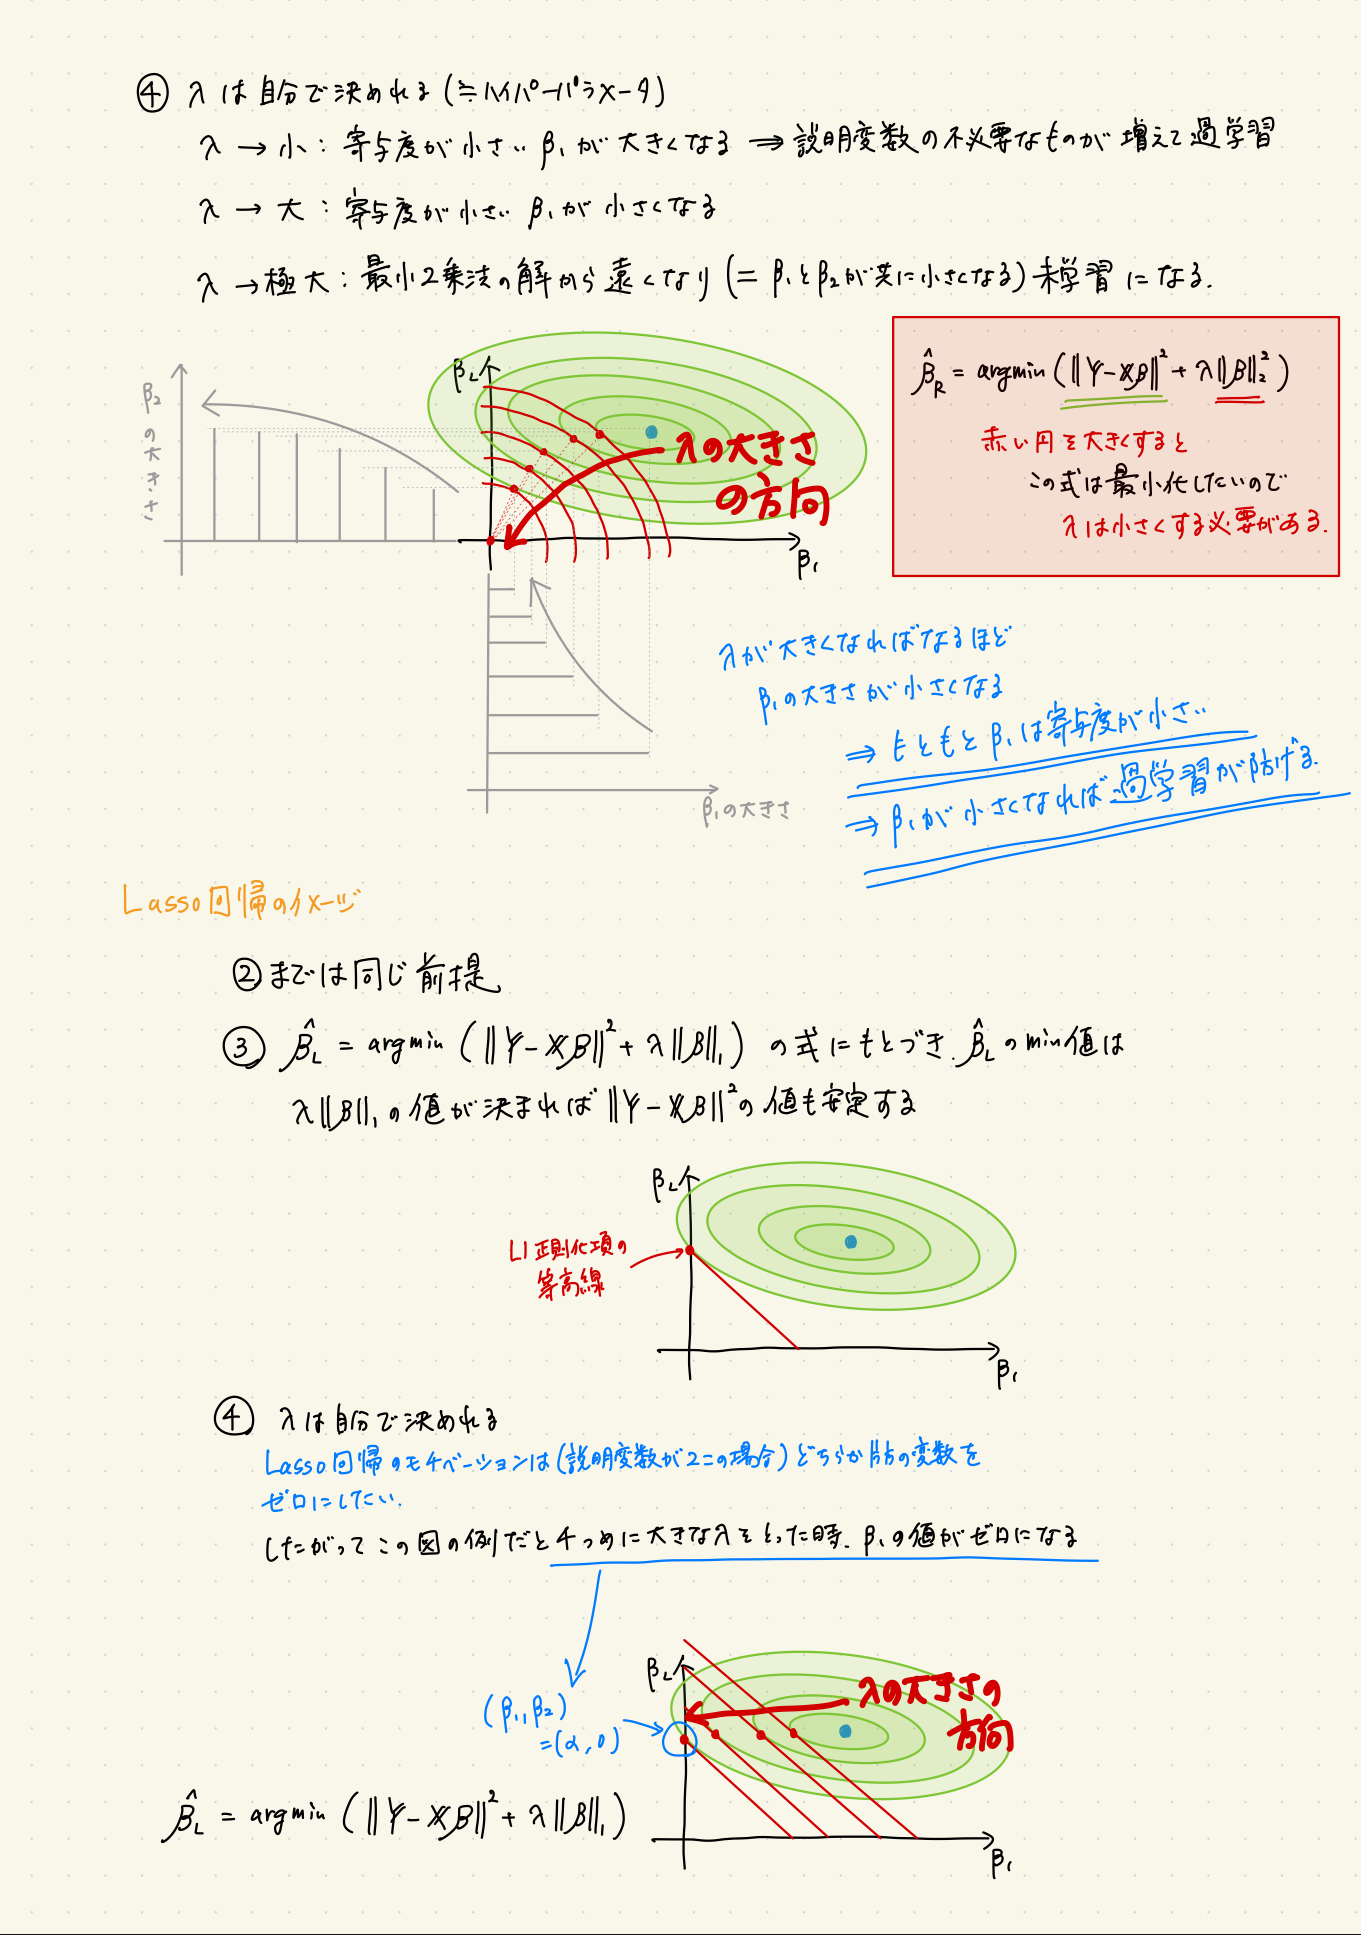 ④ λは自分で決めれる(≒ハイパーパラメータ)
λ → 小: 寄与度が小さいβ₁が大きくなる ⇒ 説明変数の不必要なものが増えて過学習
λ → 大: 寄与度が小さいβ₁が小さくなる
λ → 極大: 最小2乗法の解から遠くなり(= β₁とβ₂が共に小さくなる)未学習になる.
β₂の大きさ
β₂
λの大きさ
の方向
β₁
β̂_R = argmin (‖Y-Xβ‖² + λ‖β‖₂²)
赤い円を大きくすると
この式は最小化したいので
λは小さくする必要がある.
λが大きくなればなるほど
β₁の大きさが小さくなる
⇒ もともとβ₁は寄与度が小さい
⇒ β₁が小さくなれば過学習が防げる.
β₁の大きさ
Lasso回帰のイメージ
②までは同じ前提
③ β̂_L = argmin (‖Y-Xβ‖² + λ‖β‖₁) の式にもとづき、β̂_Lのmin値は
λ‖β‖₁の値が決まれば‖Y-Xβ‖²の値も安定する
β₂
L1正則化項の
等高線
β₁
④ λは自分で決めれる
Lasso回帰のモチベーションは(説明変数が2この場合)どちらか片方の変数を
ゼロにしたい.
したがってこの図の例だと4つめに大きなλをとった時、β₁の値がゼロになる
β₂
λの大きさの
方向
(β₁,β₂)
=(α,0)
β̂_L = argmin (‖Y-Xβ‖² + λ‖β‖₁)
β₁